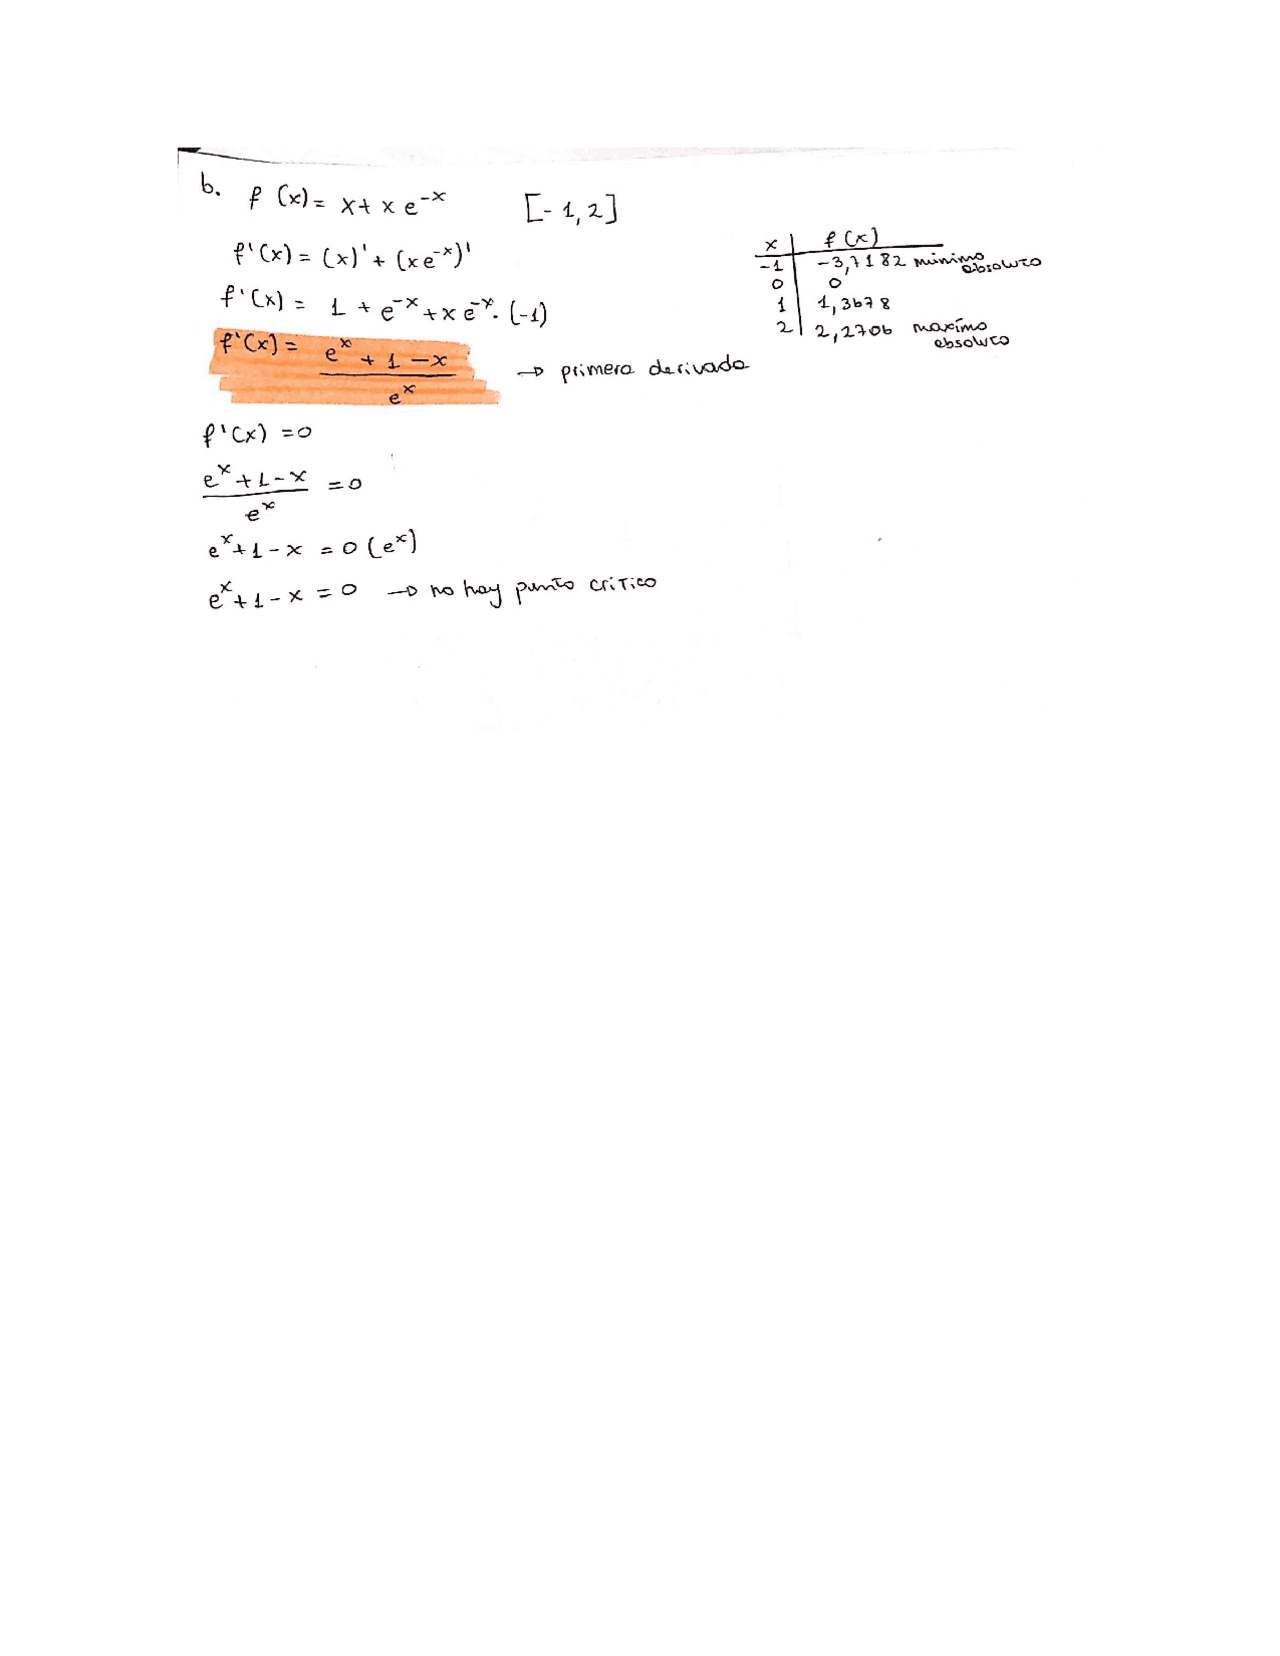 b. f (x) = x + x e^-x [-1, 2]
f'(x) = (x)' + (x e^-x)'
f'(x) = 1 + e^-x + x e^-x . (-1)
f'(x) = (e^x + 1 - x) / e^x → primera derivada
f'(x) = 0
(e^x + 1 - x) / e^x = 0
e^x + 1 - x = 0 (e^x)
e^x + 1 - x = 0 → no hay punto critico
x | f (x)
-1 | -3,7182 minimo absoluto
0 | 0
1 | 1,3678
2 | 2,2706 maxímo absoluto